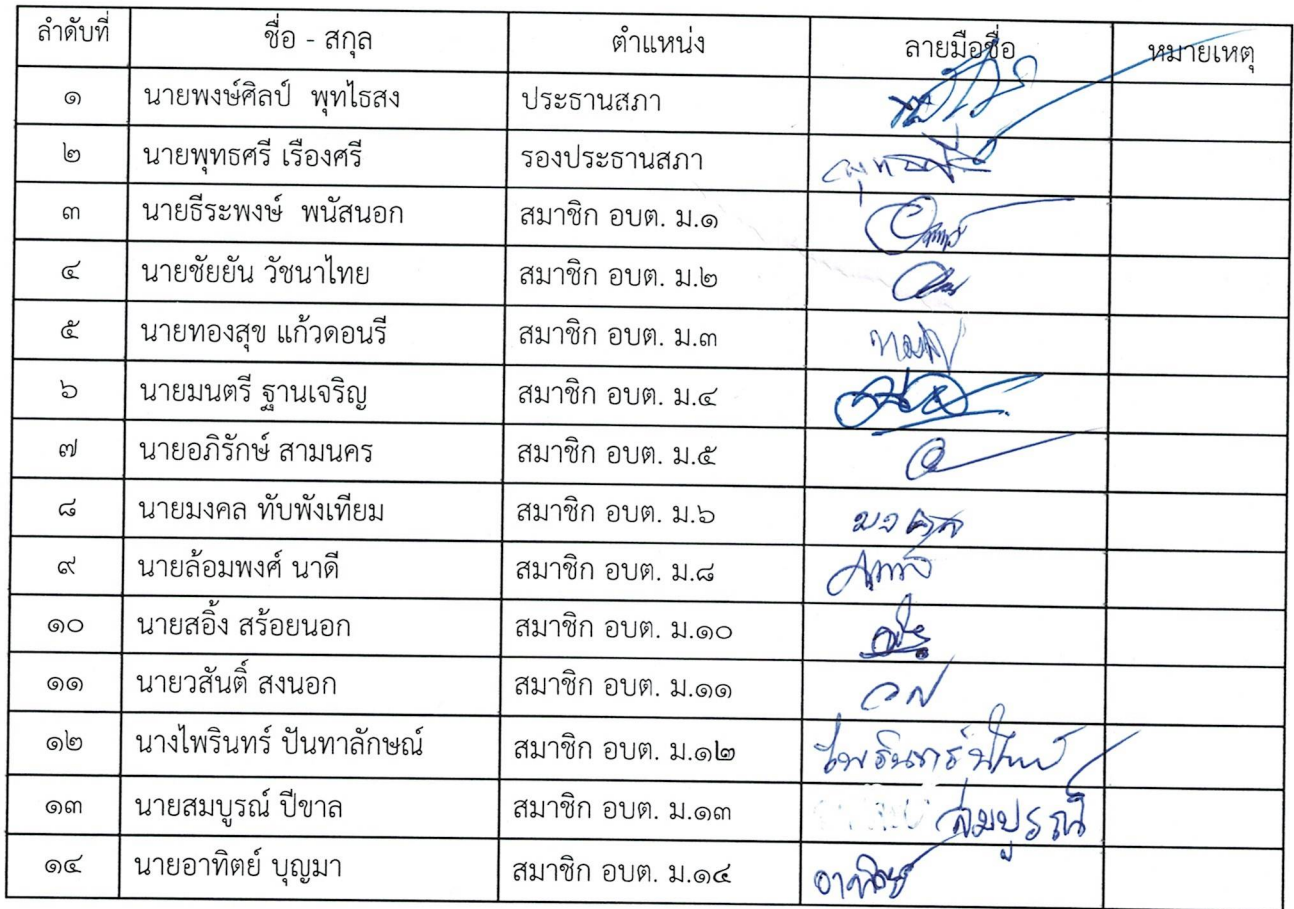 ลำดับที่ ชื่อ - สกุล ตำแหน่ง ลายมือชื่อ หมายเหตุ
๑ นายพงษ์ศิลป์ พุทไธสง ประธานสภา
๒ นายพุทธศรี เรืองศรี รองประธานสภา พุทธศรี
๓ นายธีระพงษ์ พนัสนอก สมาชิก อบต. ม.๑
๔ นายชัยยัน วัชนาไทย สมาชิก อบต. ม.๒
๕ นายทองสุข แก้วดอนรี สมาชิก อบต. ม.๓
๖ นายมนตรี ฐานเจริญ สมาชิก อบต. ม.๔
๗ นายอภิรักษ์ สามนคร สมาชิก อบต. ม.๕
๘ นายมงคล ทับพังเทียม สมาชิก อบต. ม.๖ มงคล
๙ นายล้อมพงศ์ นาดี สมาชิก อบต. ม.๘
๑๐ นายสอิ้ง สร้อยนอก สมาชิก อบต. ม.๑๐
๑๑ นายวสันติ์ สงนอก สมาชิก อบต. ม.๑๑
๑๒ นางไพรินทร์ ปันทาลักษณ์ สมาชิก อบต. ม.๑๒ ไพรินทร์
๑๓ นายสมบูรณ์ ปีขาล สมาชิก อบต. ม.๑๓ สมบูรณ์
๑๔ นายอาทิตย์ บุญมา สมาชิก อบต. ม.๑๔ อาทิตย์